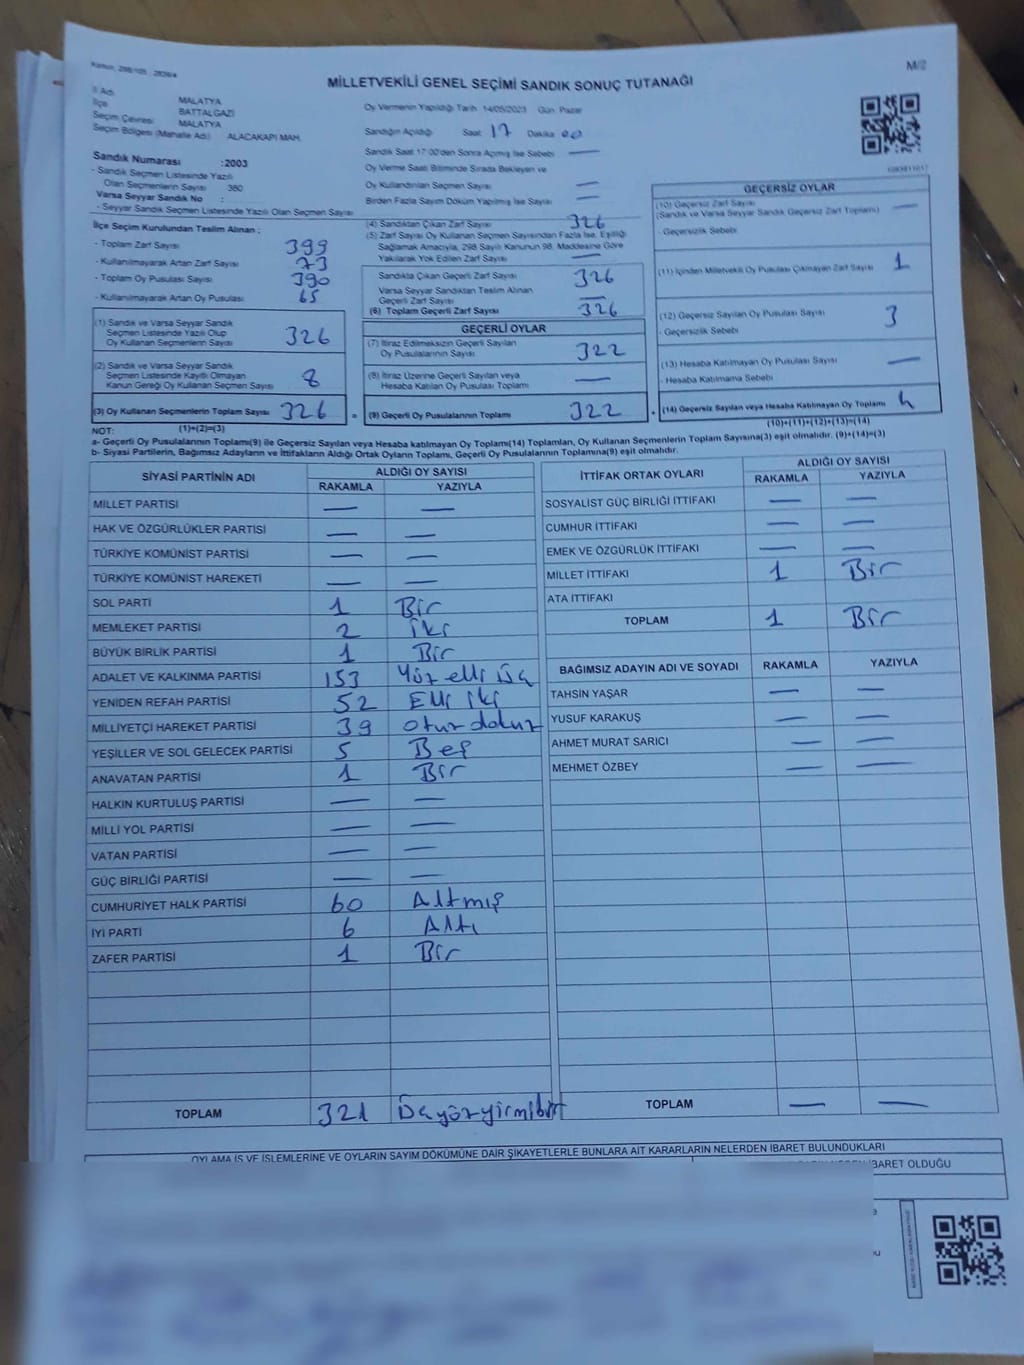 Kanun: 298/105 : 2839/a
M/2
MİLLETVEKİLİ GENEL SEÇİMİ SANDIK SONUÇ TUTANAĞI
İl Adı MALATYA
İlçe BATTALGAZİ
Seçim Çevresi MALATYA
Seçim Bölgesi (Mahalle Adı) ALACAKAPI MAH.
Oy Vermenin Yapıldığı Tarih 14/05/2023 Gün: Pazar
Sandığın Açıldığı Saat 17 Dakika 00
Sandık Saat 17:00'den Sonra Açılmış İse Sebebi —
Oy Verme Saati Bitiminde Sırada Bekleyen ve
Oy Kullandırılan Seçmen Sayısı —
Birden Fazla Sayım Döküm Yapılmış İse Sayısı —
Sandık Numarası :2003
- Sandık Seçmen Listesinde Yazılı
Olan Seçmenlerin Sayısı 380
Varsa Seyyar Sandık No :
- Seyyar Sandık Seçmen Listesinde Yazılı Olan Seçmen Sayısı
İlçe Seçim Kurulundan Teslim Alınan :
- Toplam Zarf Sayısı 399
- Kullanılmayarak Artan Zarf Sayısı 73
- Toplam Oy Pusulası Sayısı 390
- Kullanılmayarak Artan Oy Pusulası 65
(1) Sandık ve Varsa Seyyar Sandık
Seçmen Listesinde Yazılı Olup
Oy Kullanan Seçmenlerin Sayısı 326
(2) Sandık ve Varsa Seyyar Sandık
Seçmen Listesinde Kayıtlı Olmayan
Kanun Gereği Oy Kullanan Seçmen Sayısı 8
(3) Oy Kullanan Seçmenlerin Toplam Sayısı 326 =
(1)+(2)=(3)
(4) Sandıktan Çıkan Zarf Sayısı 326
(5) Zarf Sayısı Oy Kullanan Seçmen Sayısından Fazla İse, Eşitliği
Sağlamak Amacıyla, 298 Sayılı Kanunun 98. Maddesine Göre
Yakılarak Yok Edilen Zarf Sayısı —
Sandıkta Çıkan Geçerli Zarf Sayısı 326
Varsa Seyyar Sandıktan Teslim Alınan
Geçerli Zarf Sayısı —
(6) Toplam Geçerli Zarf Sayısı 326
GEÇERLİ OYLAR
(7) İtiraz Edilmeksizin Geçerli Sayılan
Oy Pusulalarının Sayısı 322
(8) İtiraz Üzerine Geçerli Sayılan veya
Hesaba Katılan Oy Pusulası Toplamı —
(9) Geçerli Oy Pusulalarının Toplamı 322 +
GEÇERSİZ OYLAR
(10) Geçersiz Zarf Sayısı —
(Sandık ve Varsa Seyyar Sandık Geçersiz Zarf Toplamı)
- Geçersizlik Sebebi
(11) İçinden Milletvekili Oy Pusulası Çıkmayan Zarf Sayısı 1
(12) Geçersiz Sayılan Oy Pusulası Sayısı 3
- Geçersizlik Sebebi
(13) Hesaba Katılmayan Oy Pusulası Sayısı —
- Hesaba Katılmama Sebebi
(14) Geçersiz Sayılan veya Hesaba Katılmayan Oy Toplamı 4
(10)+(11)+(12)+(13)=(14)
NOT:
a- Geçerli Oy Pusulalarının Toplamı(9) ile Geçersiz Sayılan veya Hesaba katılmayan Oy Toplamı(14) Toplamları, Oy Kullanan Seçmenlerin Toplam Sayısına(3) eşit olmalıdır. (9)+(14)=(3)
b- Siyasi Partilerin, Bağımsız Adayların ve İttifakların Aldığı Ortak Oyların Toplamı, Geçerli Oy Pusulalarının Toplamına(9) eşit olmalıdır.
SİYASİ PARTİNİN ADI ALDIĞI OY SAYISI
RAKAMLA YAZIYLA
MİLLET PARTİSİ — —
HAK VE ÖZGÜRLÜKLER PARTİSİ — —
TÜRKİYE KOMÜNİST PARTİSİ — —
TÜRKİYE KOMÜNİST HAREKETİ — —
SOL PARTİ 1 Bir
MEMLEKET PARTİSİ 2 iki
BÜYÜK BİRLİK PARTİSİ 1 Bir
ADALET VE KALKINMA PARTİSİ 153 Yüz elli üç
YENİDEN REFAH PARTİSİ 52 Elli iki
MİLLİYETÇİ HAREKET PARTİSİ 39 otuz dokuz
YEŞİLLER VE SOL GELECEK PARTİSİ 5 Beş
ANAVATAN PARTİSİ 1 Bir
HALKIN KURTULUŞ PARTİSİ — —
MİLLİ YOL PARTİSİ — —
VATAN PARTİSİ — —
GÜÇ BİRLİĞİ PARTİSİ — —
CUMHURİYET HALK PARTİSİ 60 Altmış
İYİ PARTİ 6 Altı
ZAFER PARTİSİ 1 Bir
TOPLAM 321 Üçyüzyirmibir
İTTİFAK ORTAK OYLARI ALDIĞI OY SAYISI
RAKAMLA YAZIYLA
SOSYALİST GÜÇ BİRLİĞİ İTTİFAKI — —
CUMHUR İTTİFAKI — —
EMEK VE ÖZGÜRLÜK İTTİFAKI — —
MİLLET İTTİFAKI 1 Bir
ATA İTTİFAKI
TOPLAM 1 Bir
BAĞIMSIZ ADAYIN ADI VE SOYADI RAKAMLA YAZIYLA
TAHSİN YAŞAR — —
YUSUF KARAKUŞ — —
AHMET MURAT SARICI — —
MEHMET ÖZBEY — —
TOPLAM — —
OYLAMA İŞ VE İŞLEMLERİNE VE OYLARIN SAYIM DÖKÜMÜNE DAİR ŞİKAYETLERLE BUNLARA AİT KARARLARIN NELERDEN İBARET BULUNDUKLARI
İBARET OLDUĞU